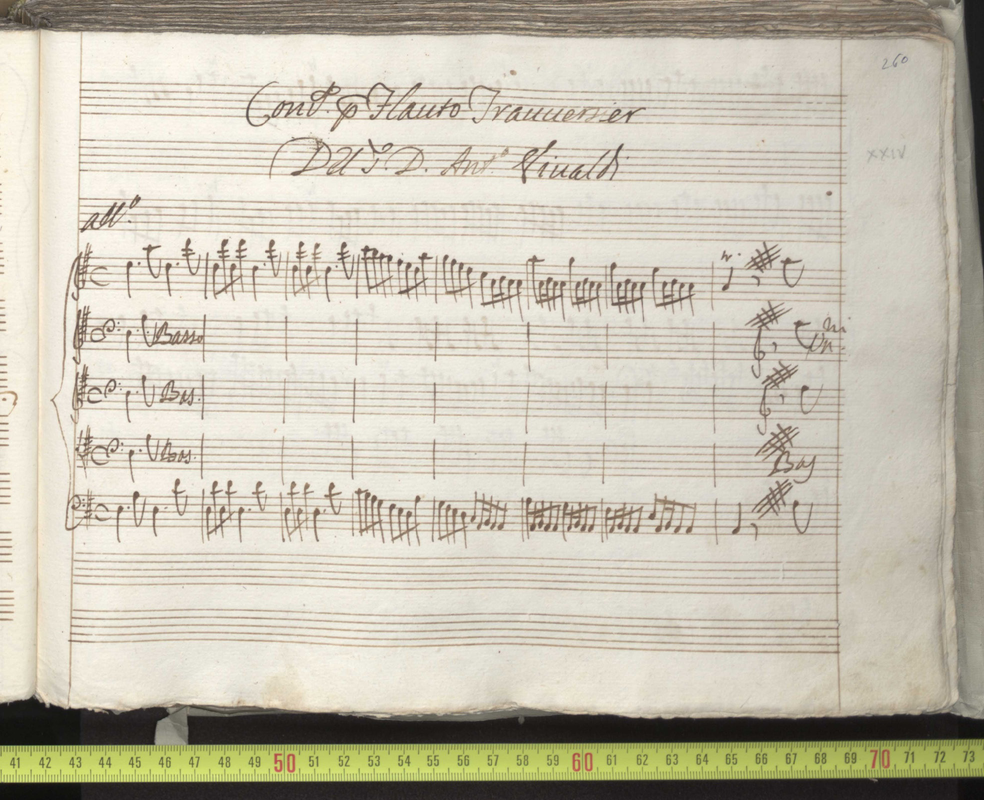 260
Con.to p Flauto Trauuersier
XXIV
Del S. D. Ant.o Viualdi
all.o
Basso
Bas.
Bas.
Bas
41 42 43 44 45 46 47 48 49 50 51 52 53 54 55 56 57 58 59 60 61 62 63 64 65 66 67 68 69 70 71 72 73